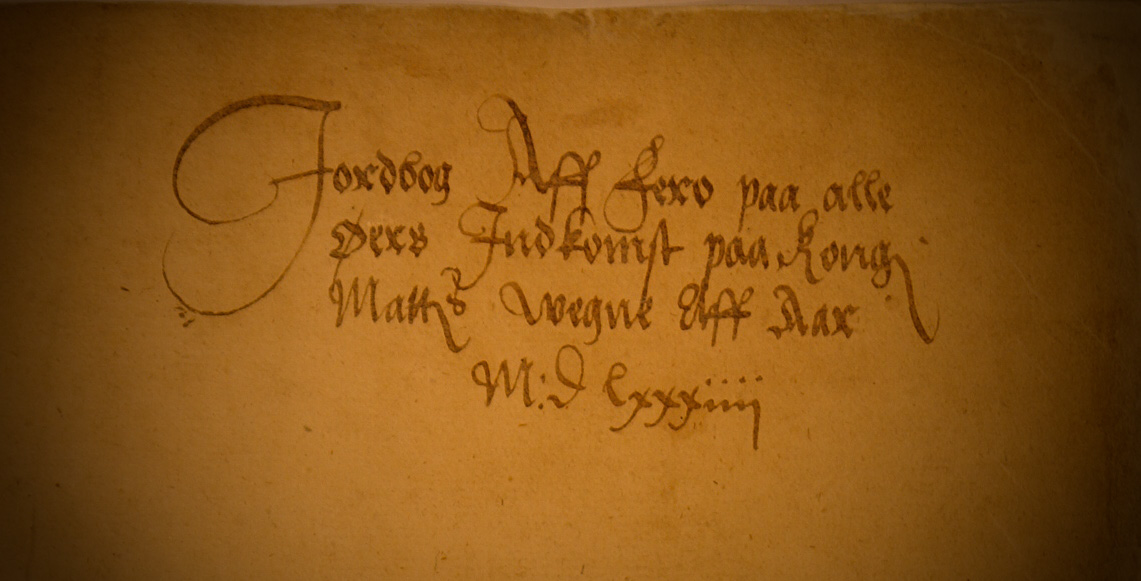 Jordbog Aff Fero paa alle
Øers Indkomst paa Kong
Matts Wegne Aff Aar
M:D lxxxiiii